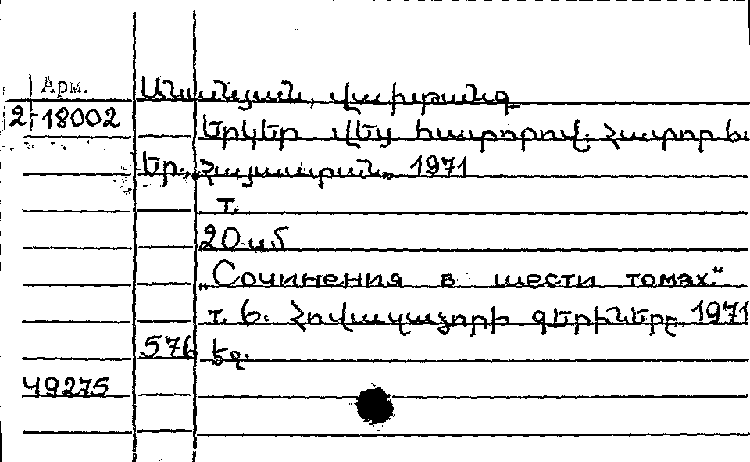 Арм.
Անանյան, Վախթանգ
2-18002
Երկեր վեց հատորով. Հատոր 6
Եր., Հայաստան, 1971
т.
20 սմ
„Сочинения в шести томах."
т. 6. Հովազաձորի գերիները. 1971
576 էջ.
49275